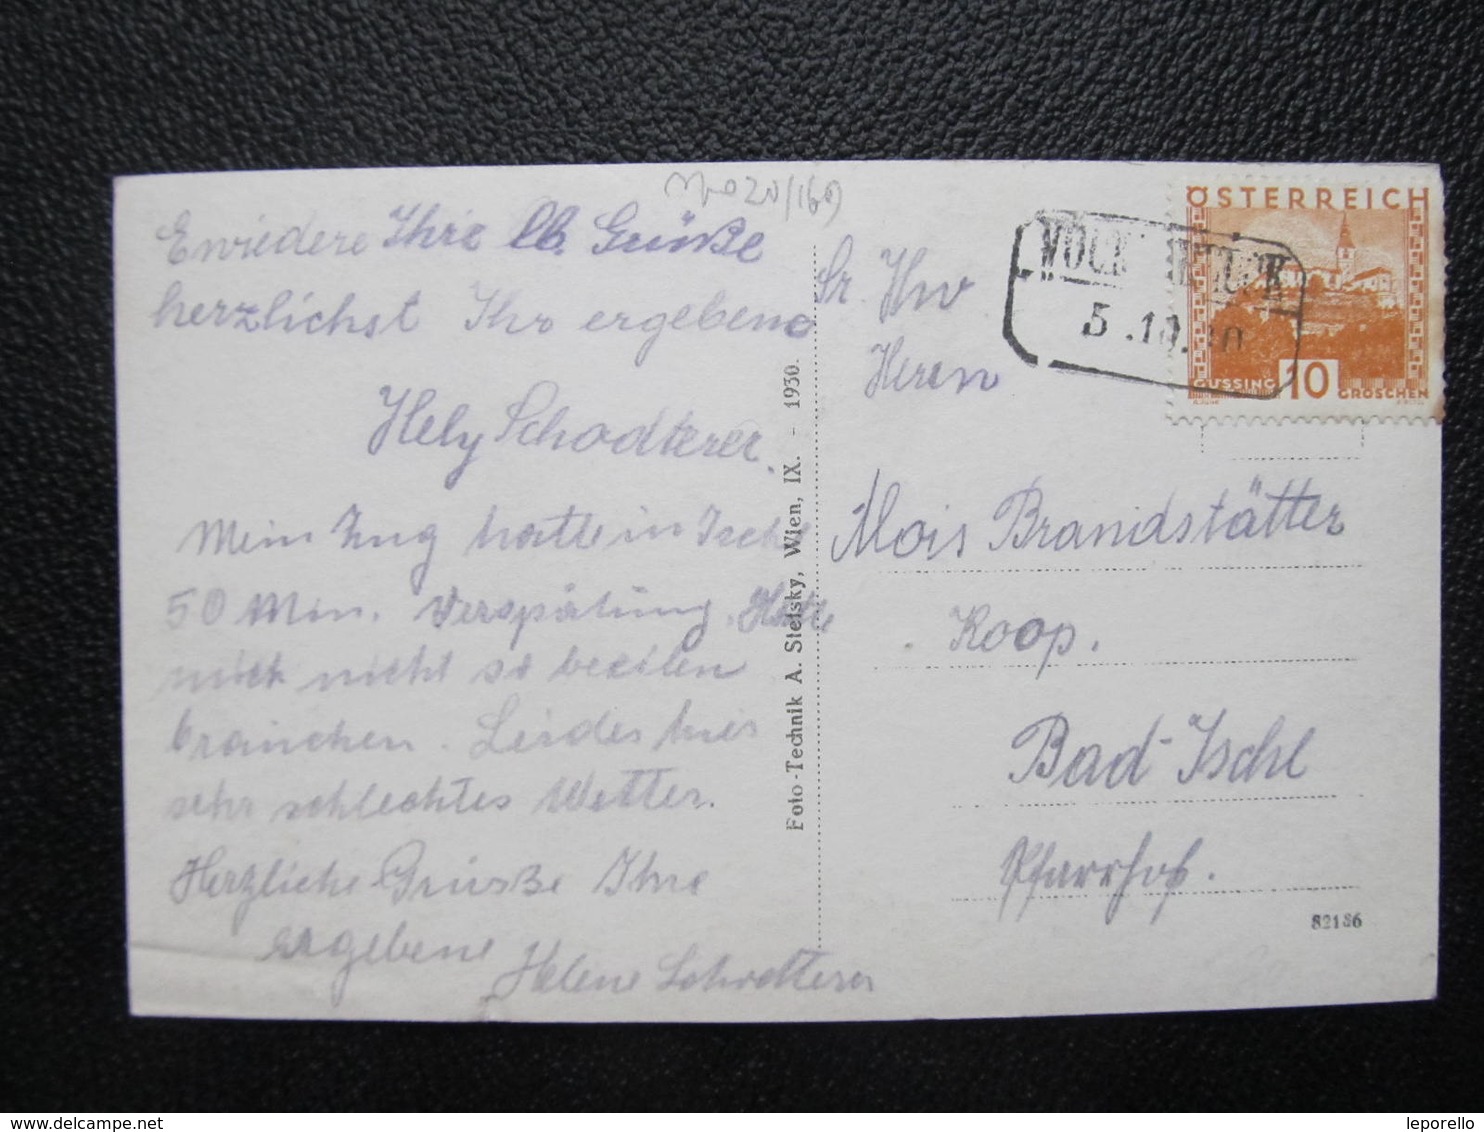 Erwiedere Ihre lb. Grüße
herzlichst Ihr ergebene
Hely Schodterer.
Mein Zug hatte in Ischl
50 Min. Verspätung. Hätte
mich nicht so beeilen
brauchen. Leider hier
sehr schlechtes Wetter.
Herzliche Grüsse Ihre
ergebene
Helene Schodterer
Foto-Technik A. Stefsky, Wien, IX. - 1930.
Sr. Hw
Herrn
Alois Brandstätter
Koop.
Bad-Ischl
Pfarrhof.
82186
ÖSTERREICH
GÜSSING 10 GROSCHEN
5.10.
delcampe.net
leporello